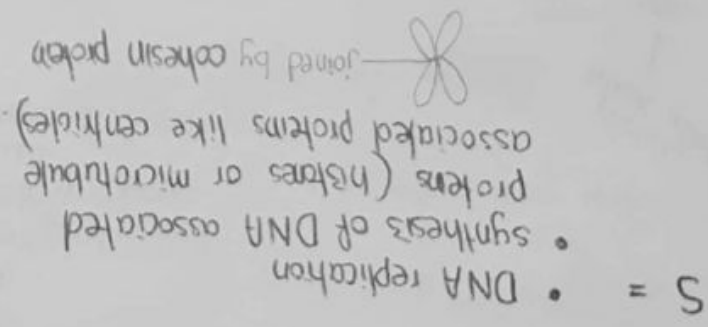 S = • DNA replication
• synthesis of DNA associated
proteins (histones or microtubule
associated proteins like centrioles)
joined by cohesin protein